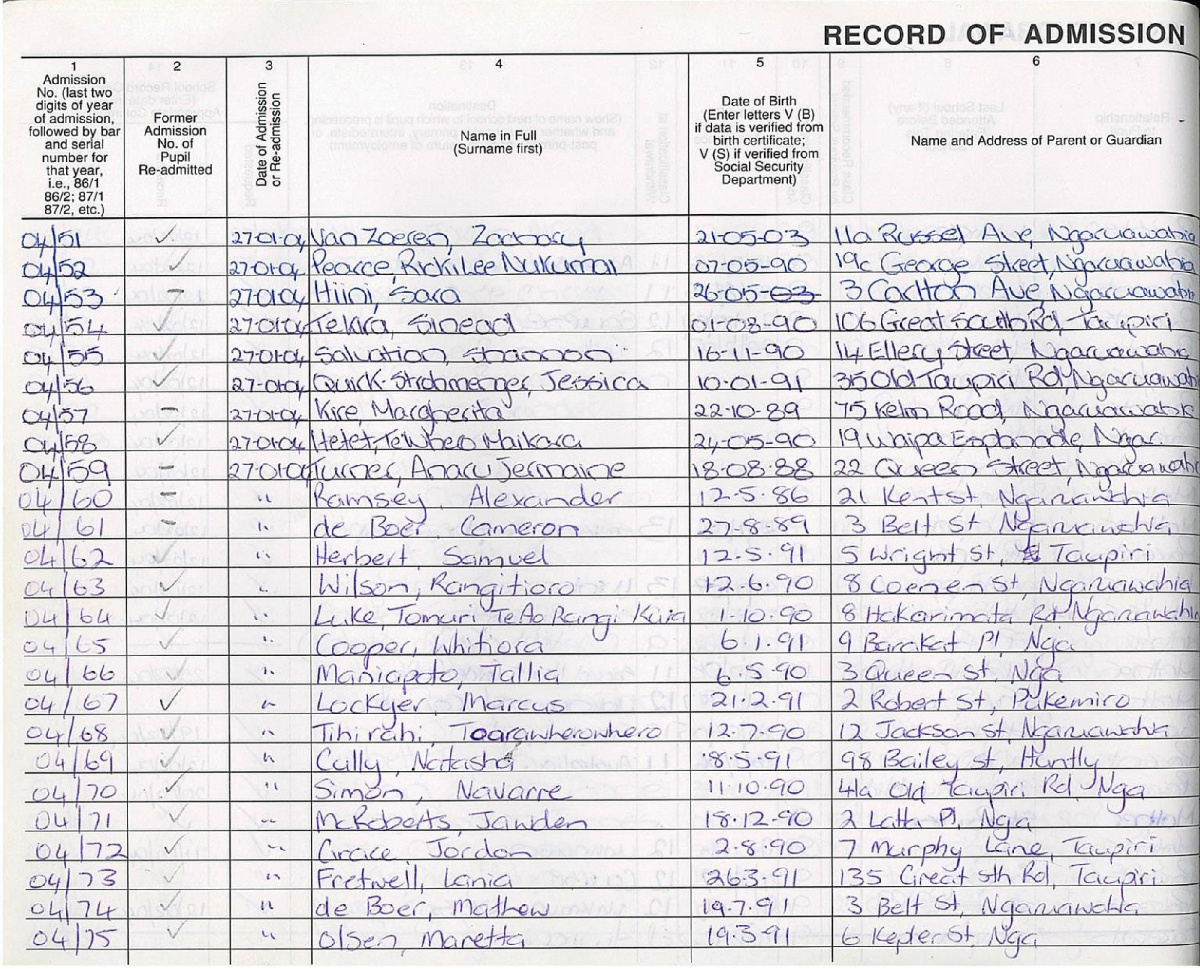 RECORD OF ADMISSION
1 2 3 4 5 6
Admission No. (last two digits of year of admission, followed by bar and serial number for that year, i.e., 86/1 86/2; 87/1 87/2, etc.)
Former Admission No. of Pupil Re-admitted
Date of Admission or Re-admission
Name in Full (Surname first)
Date of Birth (Enter letters V (B) if data is verified from birth certificate; V (S) if verified from Social Security Department)
Name and Address of Parent or Guardian
04/51 ✓ 27-01-04 Van Zoeren, Zachary 21-05-03 11a Russel Ave, Ngaruawahia
04/52 ✓ 27-01-04 Pearce, RickiLee Nukumai 07-05-90 19c George Street, Ngaruawahia
04/53 - 27-01-04 Hiini, Sara 26-05-03 3 Carlton Ave, Ngaruawahia
04/54 ✓ 27-01-04 TeKira, Sinead 01-08-90 106 Great South Rd, Taupiri
04/55 ✓ 27-01-04 Salvation, Shannon 16-11-90 14 Ellery Street, Ngaruawahia
04/56 ✓ 27-01-04 Quick-Strohmenger, Jessica 10-01-91 35 Old Taupiri Rd, Ngaruawahia
04/57 - 27-01-04 Kire, Margherita 22-10-89 75 Kelm Road, Ngaruawahia
04/58 ✓ 27-01-04 Hetet, TeWhero Maikara 24-05-90 19 Waipa Esplanade, Ngar.
04/59 - 27-01-04 Turner, Anaru Jermaine 18-08-88 22 Queen Street, Ngaruawahia
04/60 - " Ramsey, Alexander 12-5-86 21 Kent st, Ngaruawahia
04/61 - " de Boer, Cameron 27-8-89 3 Belt St Ngaruawahia
04/62 ✓ " Herbert, Samuel 12-5-91 5 Wright St, Taupiri
04/63 ✓ " Wilson, Rangitioro 12-6-90 8 St, Ngaruawahia
04/64 ✓ " Luke Tomuri Te Ao Rangi Kura 1-10-90 8 Hakarimata Rd Ngaruawahia
04/65 ✓ " Cooper, Whitiora 6.1.91 9 Barakat Pl, Nga
04/66 ✓ " Maniapoto, Tallia 6.5.90 3 Queen st, Nga
04/67 ✓ " Lockyer, Marcus 21.2.91 2 Robert St, Pukemiro
04/68 ✓ " Tihirahi, Toarawherowhero 12.7.90 12 Jackson st Ngaruawahia
04/69 ✓ " Cully, Natasha 18.5.91 98 Bailey st, Huntly
04/70 ✓ " Simon, Navarre 11.10.90 41a Old Taupiri Rd, Nga
04/71 ✓ " McRoberts, Jawden 18.12.90 2 Latta Pl, Nga
04/72 ✓ " Grace Jordon 2.8.90 7 Murphy Lane, Taupiri
04/73 ✓ " Fretwell, Lania 26.3.91 135 Great sth Rd, Taupiri
04/74 ✓ " de Boer, Mathew 19.7.91 3 Belt St, Ngaruawahia
04/75 ✓ " Olsen, Maretta 19.3.91 6 Kepler St, Nga